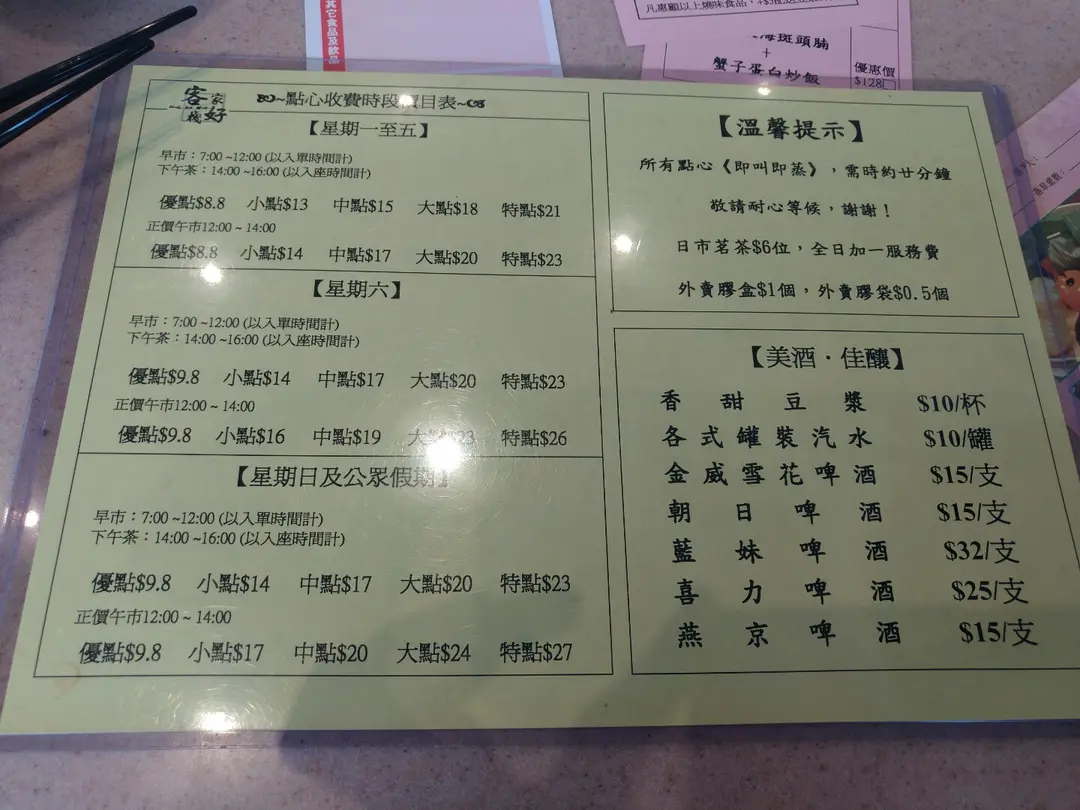 其它食品及飲品
凡惠顧以上燒味食品，
海斑頭腩
+
蟹子蛋白炒飯
優惠價
$128
客家
棧好
~點心收費時段價目表~
【星期一至五】
早市：7:00 ~12:00 (以入單時間計)
下午茶：14:00 ~16:00 (以入座時間計)
優點$8.8 小點$13 中點$15 大點$18 特點$21
正價午市12:00 ~ 14:00
優點$8.8 小點$14 中點$17 大點$20 特點$23
【星期六】
早市：7:00 ~12:00 (以入單時間計)
下午茶：14:00 ~16:00 (以入座時間計)
優點$9.8 小點$14 中點$17 大點$20 特點$23
正價午市12:00 ~ 14:00
優點$9.8 小點$16 中點$19 大點$23 特點$26
【星期日及公眾假期】
早市：7:00 ~12:00 (以入單時間計)
下午茶：14:00 ~16:00 (以入座時間計)
優點$9.8 小點$14 中點$17 大點$20 特點$23
正價午市12:00 ~ 14:00
優點$9.8 小點$17 中點$20 大點$24 特點$27
【溫馨提示】
所有點心《即叫即蒸》，需時約廿分鐘
敬請耐心等候，謝謝！
日市茗茶$6位，全日加一服務費
外賣膠盒$1個，外賣膠袋$0.5個
【美酒．佳釀】
香甜豆漿 $10/杯
各式罐裝汽水 $10/罐
金威雪花啤酒 $15/支
朝日啤酒 $15/支
藍妹啤酒 $32/支
喜力啤酒 $25/支
燕京啤酒 $15/支